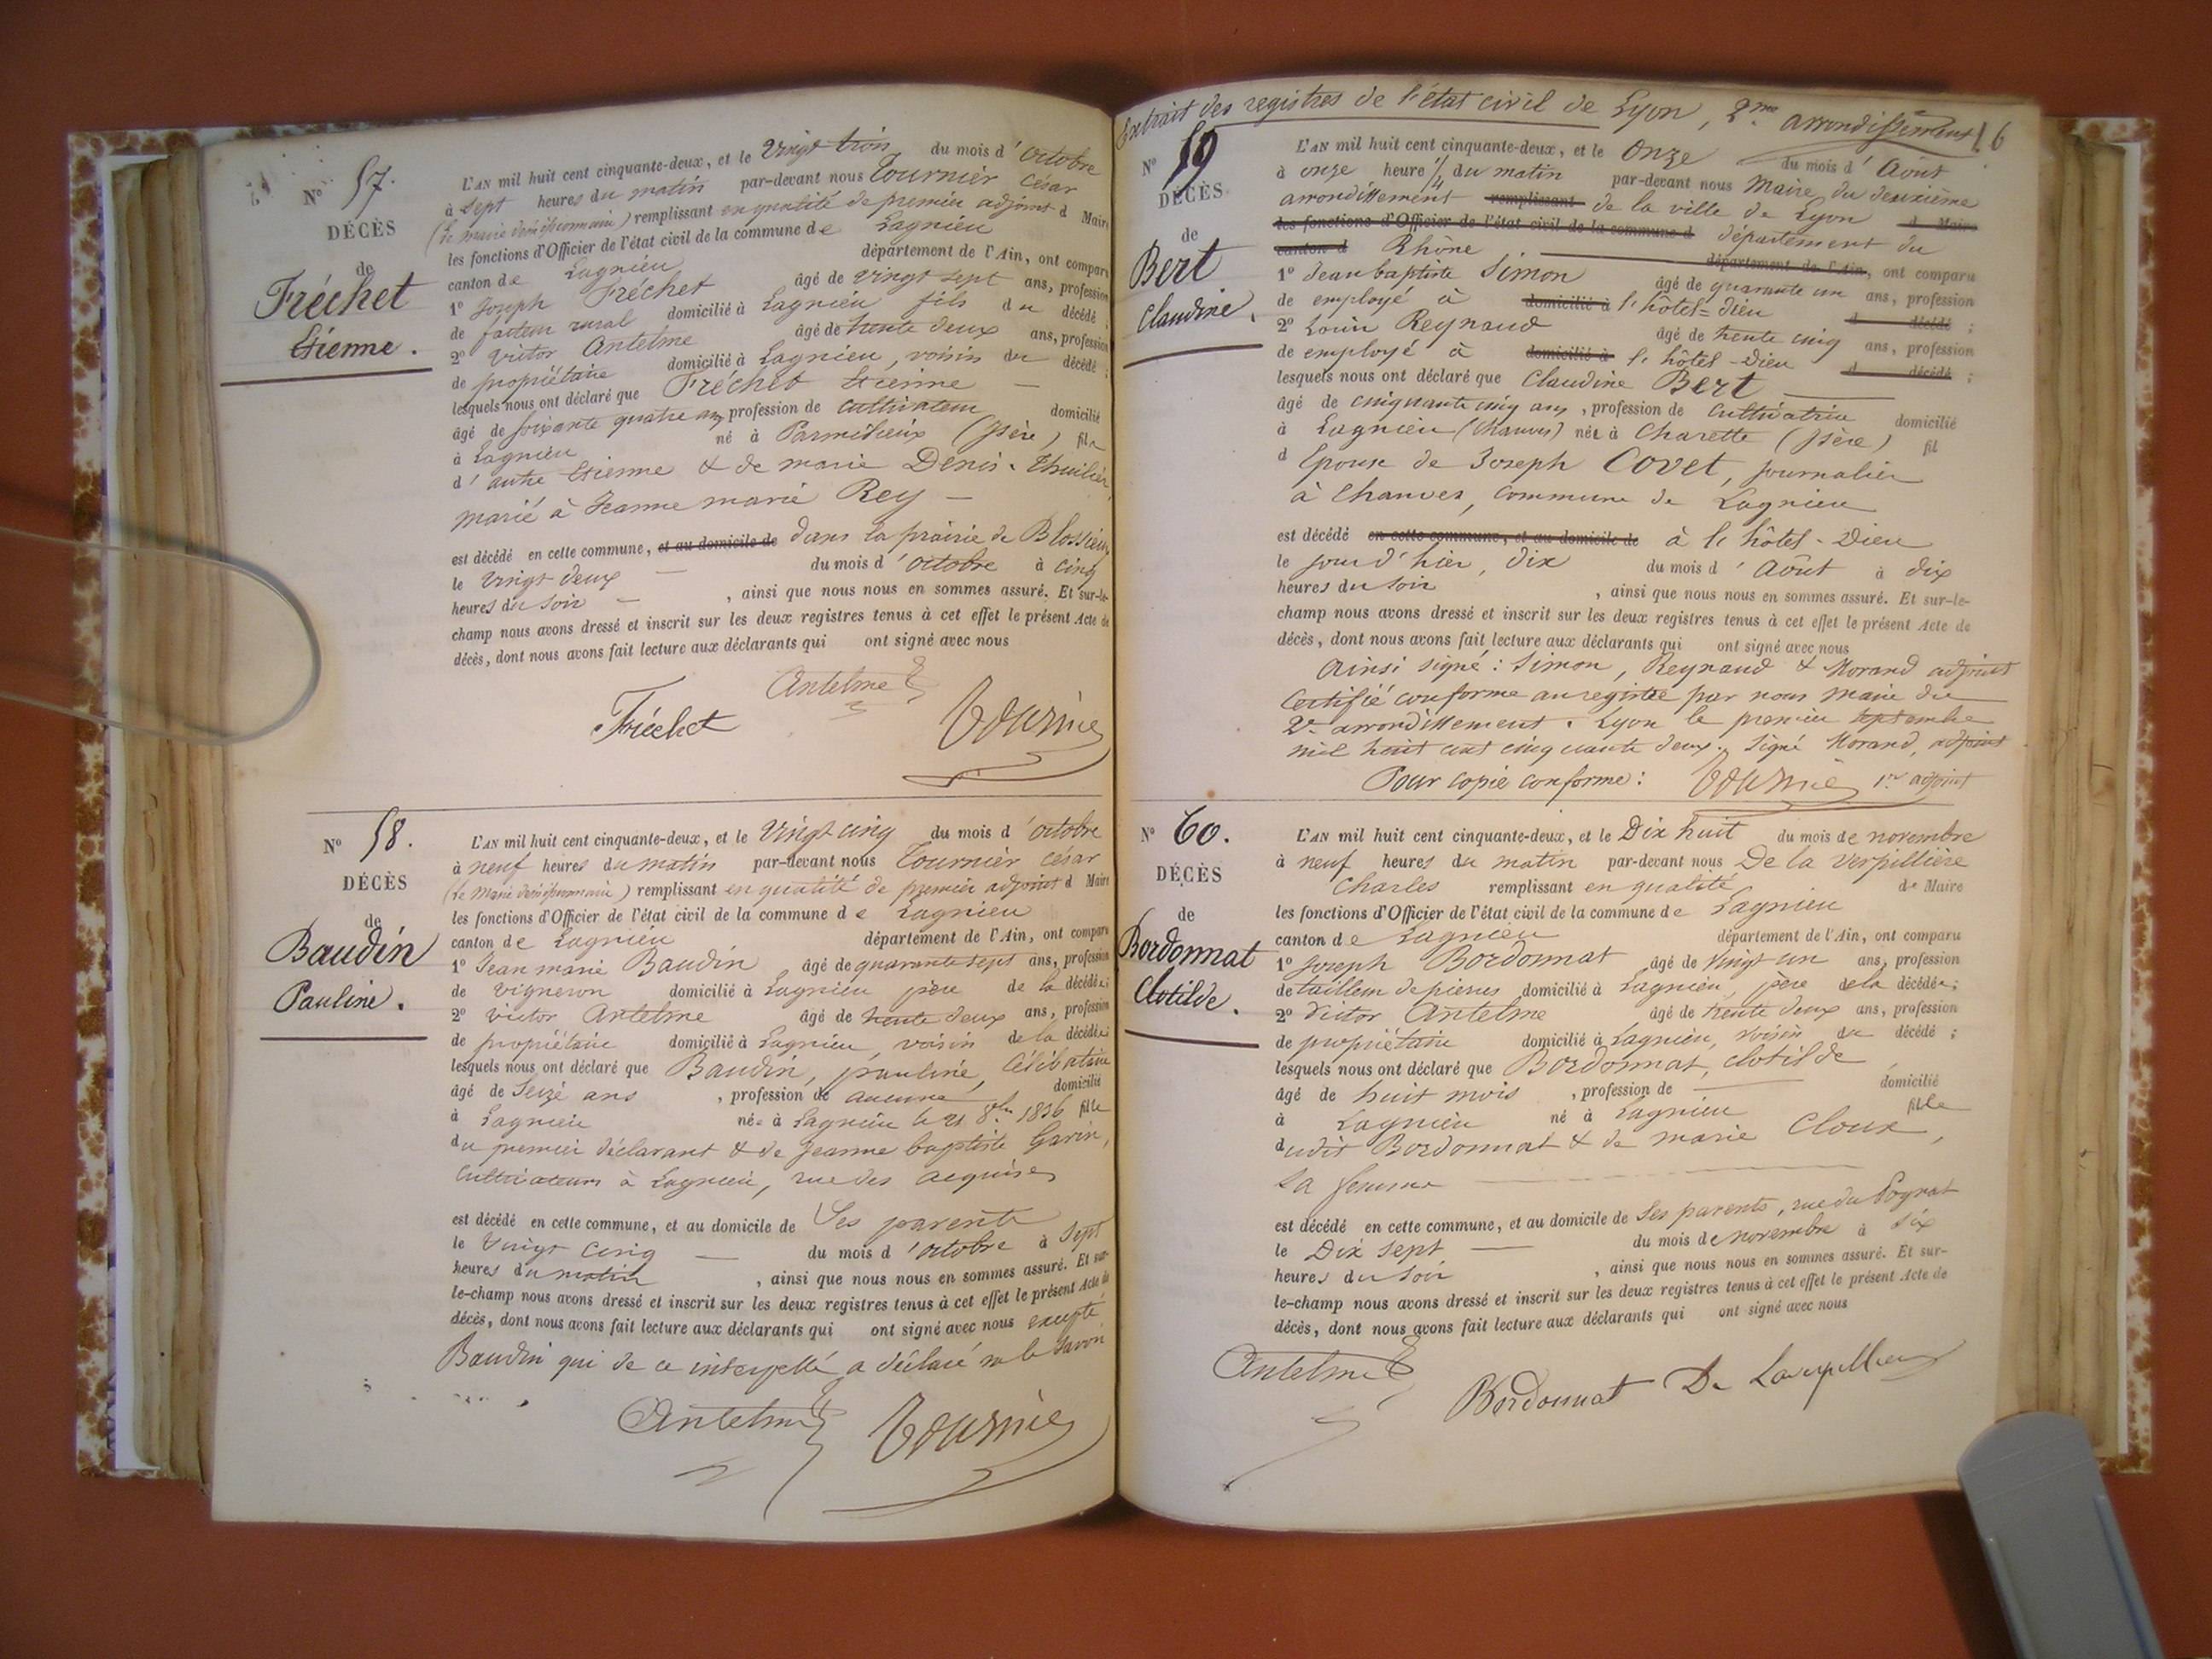 N° 57.
DÉCÈS
de
Fréchet
Etienne.
L'AN mil huit cent cinquante-deux, et le Vingt trois du mois d'Octobre
à Sept heures du matin par-devant nous Tournier César
(Le maire démissionnaire) remplissant en qualité de premier adjoint d Maire
les fonctions d'Officier de l'état civil de la commune de Lagnieu
canton de Lagnieu département de l'Ain, ont comparu
1° Joseph Fréchet âgé de vingt sept ans, profession
de facteur rural domicilié à Lagnieu fils du décédé ;
2° Victor Antelme âgé de trente deux ans, profession
de propriétaire domicilié à Lagnieu, voisin du décédé ;
lesquels nous ont déclaré que Fréchet Etienne
âgé de soixante quatre ans, profession de cultivateur domicilié
à Lagnieu né à Parmilieux (Isère) fils
d'autre Etienne & de marie Denis-Thuilier,
marié à Jeanne marie Rey
est décédé en cette commune, et au domicile de dans la prairie de Blossieu,
le vingt deux du mois d'octobre à cinq
heures du soir, ainsi que nous nous en sommes assuré. Et sur-le-
champ nous avons dressé et inscrit sur les deux registres tenus à cet effet le présent Acte de
décès, dont nous avons fait lecture aux déclarants qui ont signé avec nous
Antelme
Fréchet Tournier
N° 58.
DÉCÈS
de
Baudin
Pauline.
L'AN mil huit cent cinquante-deux, et le Vingt cinq du mois d'octobre
à neuf heures du matin par-devant nous Tournier César
(Le Maire démissionnaire) remplissant en qualité de premier adjoint d Maire
les fonctions d'Officier de l'état civil de la commune de Lagnieu
canton de Lagnieu département de l'Ain, ont comparu
1° Jean marie Baudin âgé de quarante sept ans, profession
de vigneron domicilié à Lagnieu père de la décédée ;
2° Victor Antelme âgé de trente deux ans, profession
de propriétaire domicilié à Lagnieu, voisin de la décédée ;
lesquels nous ont déclaré que Baudin, pauline, Célibataire
âgé de Seize ans, profession de aucune domicilié
à Lagnieu née à Lagnieu le 21 8bre 1836 fille
du premier déclarant & de Jeanne baptiste Garin,
Cultivateurs à Lagnieu, rue des acquises
est décédé en cette commune, et au domicile de Ses parents
le Vingt Cinq du mois d'octobre à Sept
heures du matin, ainsi que nous nous en sommes assuré. Et sur-
le-champ nous avons dressé et inscrit sur les deux registres tenus à cet effet le présent Acte de
décès, dont nous avons fait lecture aux déclarants qui ont signé avec nous excepté
Baudin qui de ce interpellé a déclaré ne le Savoir
Antelme Tournier
Extrait des registres de l'état civil de Lyon, 2me arrondissement 16
N° 59
DÉCÈS
de
Bert
Claudine.
L'AN mil huit cent cinquante-deux, et le Onze du mois d'Août
à onze heure 1/4 du matin par-devant nous Maire du deuxième
arrondissement remplissant de la ville de Lyon d Maire
les fonctions d'Officier de l'état civil de la commune d département du
canton d Rhône département de l'Ain, ont comparu
1° Jean baptiste Simon âgé de quarante un ans, profession
de employé à domicilié à l'hôtel-dieu d décédé ;
2° Louis Reynaud âgé de trente cinq ans, profession
de employé à domicilié à l'hôtel-Dieu d décédé ;
lesquels nous ont déclaré que Claudine Bert
âgé de cinquante cinq ans, profession de cultivatrice domicilié
à Lagnieu (Chauves) née à Charette (Isère) fil
d Epouse de Joseph Covet, journalier
à Chauves, commune de Lagnieu
est décédé en cette commune, et au domicile de à l'hôtel-Dieu
le jour d'hier, dix du mois d'Août à dix
heures du soir, ainsi que nous nous en sommes assuré. Et sur-le-
champ nous avons dressé et inscrit sur les deux registres tenus à cet effet le présent Acte de
décès, dont nous avons fait lecture aux déclarants qui ont signé avec nous
Ainsi signé : Simon, Reynaud & Morand adjoint
Certifié conforme au registre par nous maire du
2e arrondissement. Lyon le premier septembre
mil huit cent cinquante deux. Signé Morand, adjoint
Pour copie conforme : Tournier 1er adjoint
N° 60.
DÉCÈS
de
Bordonnat
Clotilde.
L'AN mil huit cent cinquante-deux, et le Dix huit du mois de novembre
à neuf heures du matin par-devant nous De la Verpillière
Charles remplissant en qualité de Maire
les fonctions d'Officier de l'état civil de la commune de Lagnieu
canton de Lagnieu département de l'Ain, ont comparu
1° Joseph Bordonnat âgé de vingt un ans, profession
de tailleur de pierres domicilié à Lagnieu, père de la décédée ;
2° Victor Antelme âgé de trente deux ans, profession
de propriétaire domicilié à Lagnieu, voisin du décédé ;
lesquels nous ont déclaré que Bordonnat, Clotilde
âgé de huit mois, profession de domicilié
à Lagnieu né à Lagnieu fille
dudit Bordonnat & de marie Cloux,
Sa femme
est décédé en cette commune, et au domicile de Ses parents, rue du Pognat
le Dix Sept du mois de novembre à Six
heures du Soir, ainsi que nous nous en sommes assuré. Et sur-
le-champ nous avons dressé et inscrit sur les deux registres tenus à cet effet le présent Acte de
décès, dont nous avons fait lecture aux déclarants qui ont signé avec nous
Antelme Bordonnat De Laverpilliere